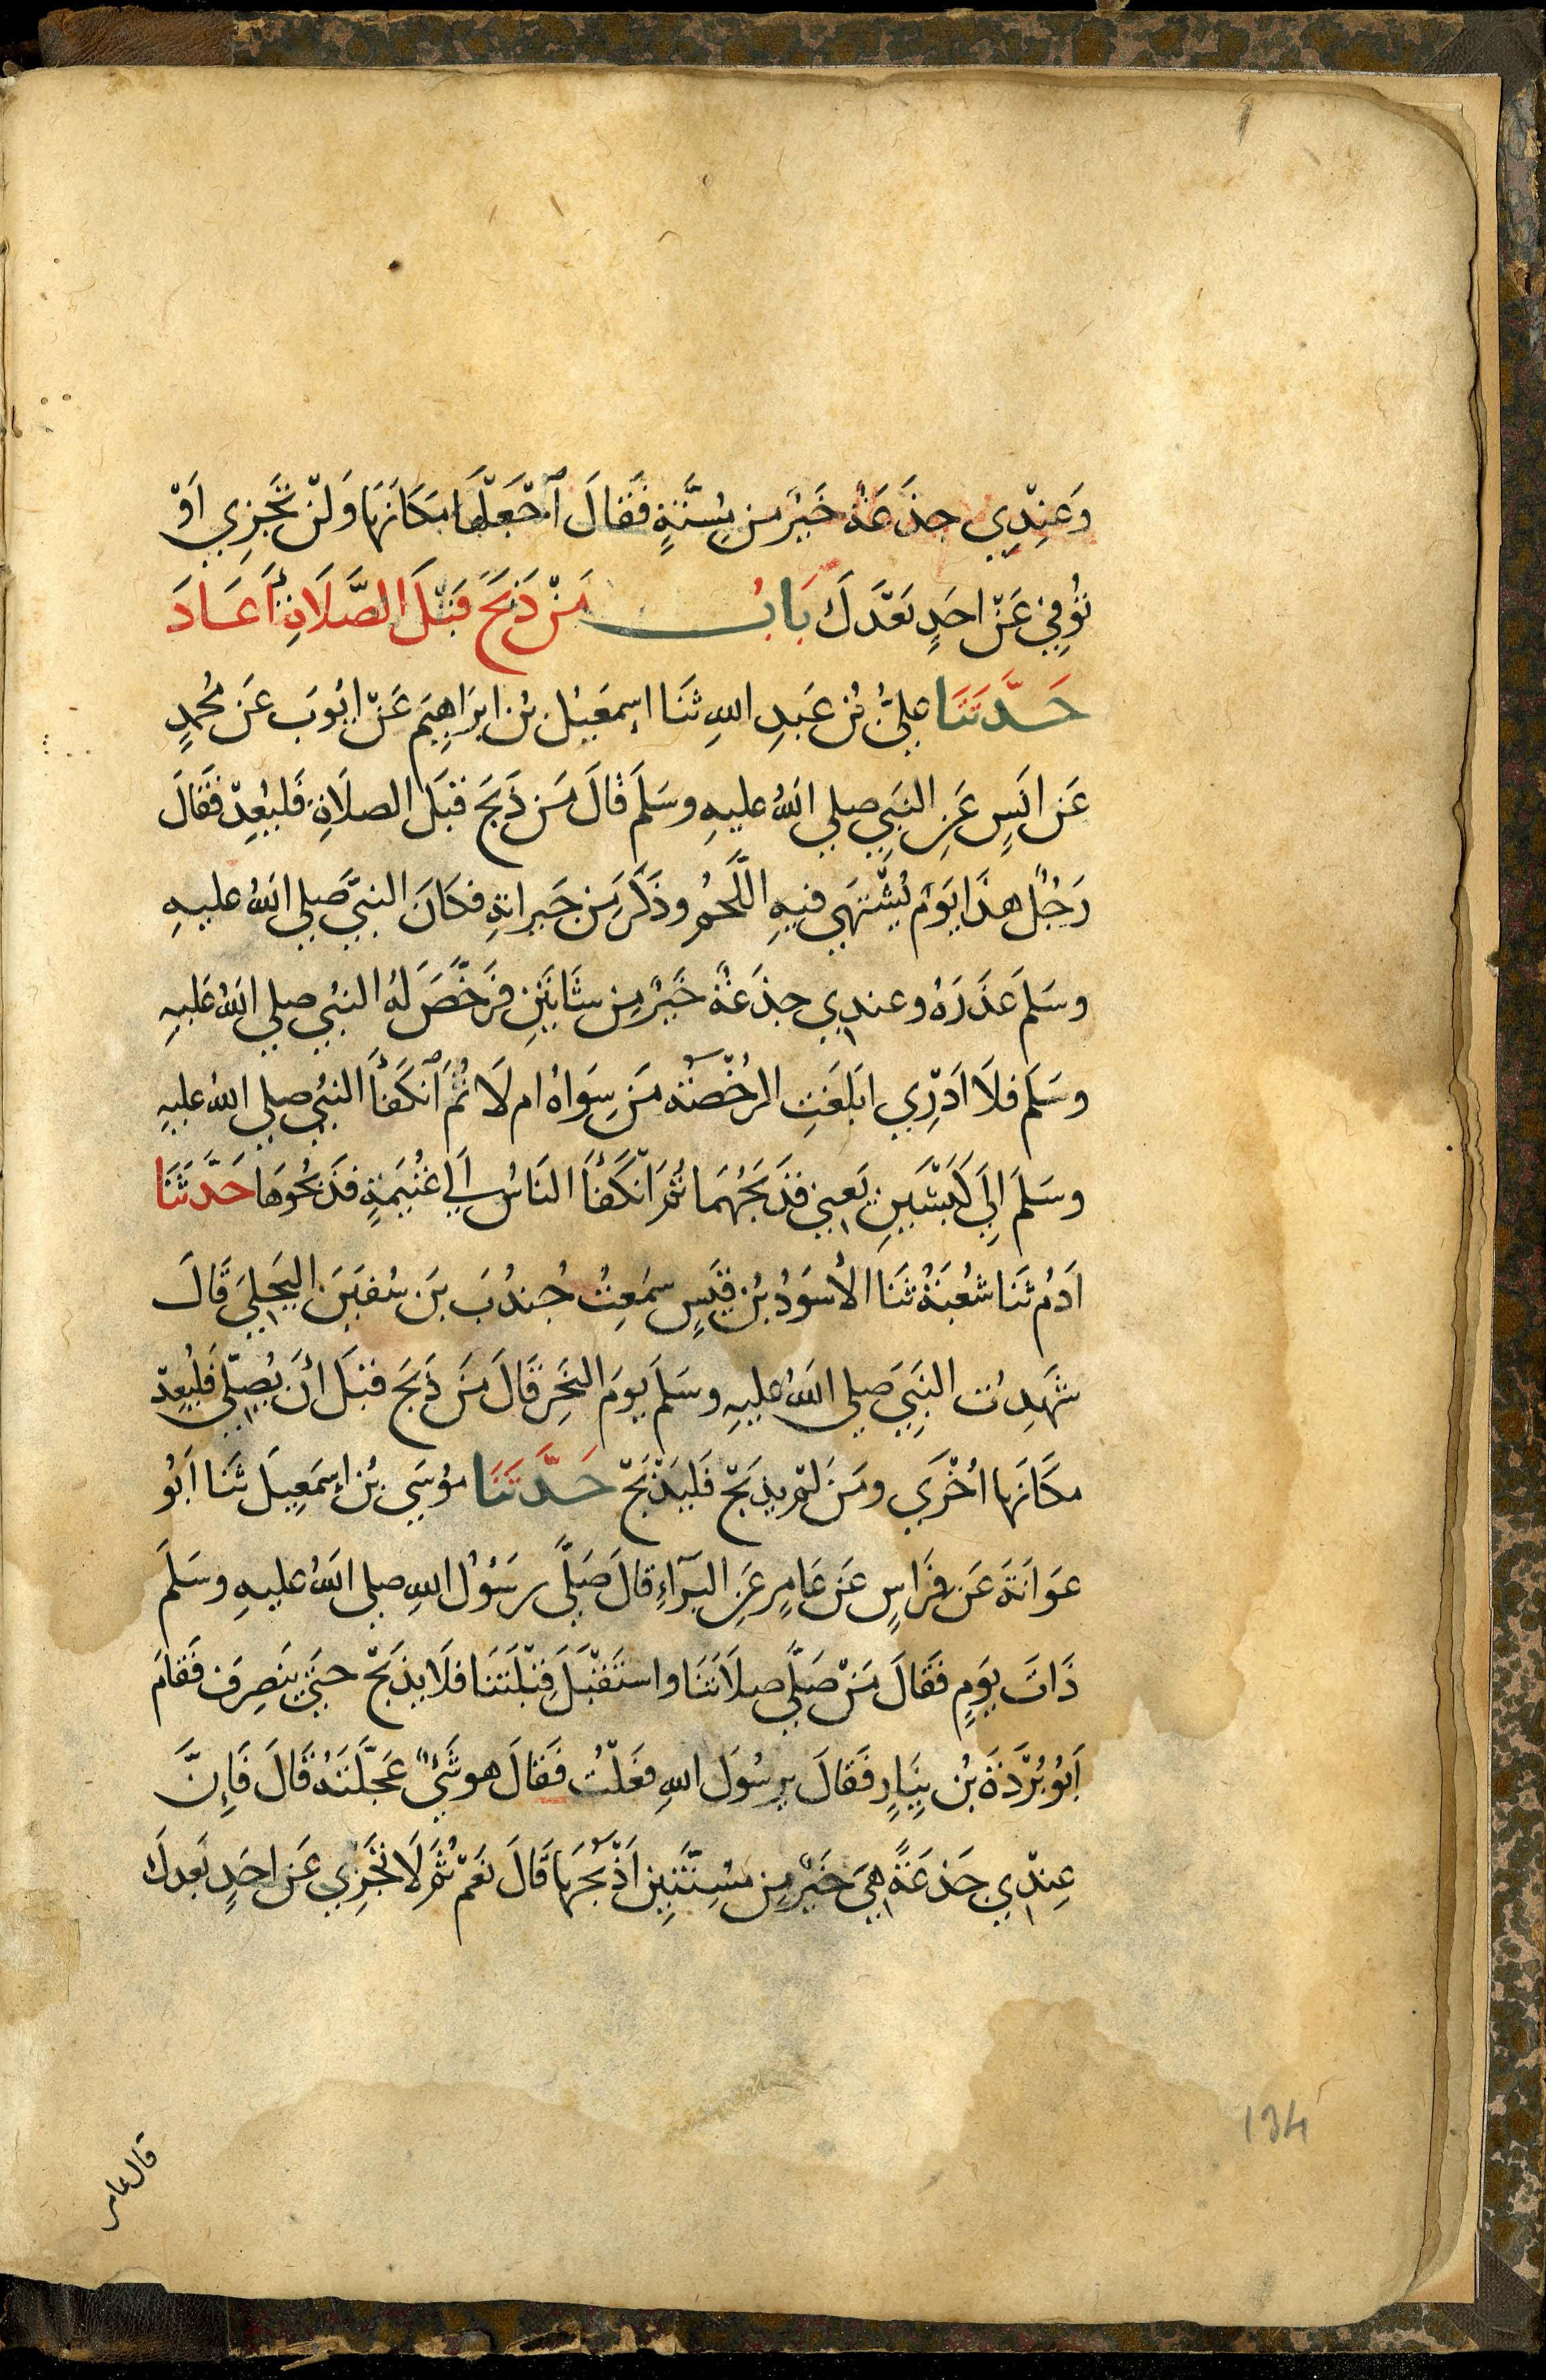 وَعِنْدِي جذَعَةٌ خَيْرٌ من مُسِنَّةٍ فَقَالَ ٱجْعَلْهَا مَكَانَهَا وَلَنْ تَجْزِي اَوْ
تُوفِيَ عَنْ احَدٍ بَعْدَكَ بَابُ مَنْ ذَبَحَ قَبْلَ الصَّلَاةِ أَعَادَ
حَدَّثَنَا عَلِيُّ بْنُ عَبدِ اللهِ ثَنَا إِسمَعِيْلُ بْنُ ابرَاهِيمَ عَنْ ايُوبَ عَن مُحمدٍ
عَن انَسٍ عَنِ النَبِيِ صلي اللهُ عليهِ وسَلَمَ قَالَ مَن ذَبَحَ قبَلَ الصلَاةِ فَليُعِدْ فَقَالَ
رَجُلٌ هذَا يَوَمٌ يُشْتَهَي فيهِ اللَّحمُ وذَكَرَ مَن جَيرانهِ فكَانَ النبيَّ صَلي اللهُ عليهِ
وسَلمَ عَذَرَهُ وعندِي جذَعَةٌ خَيْرٌ مِن شَاتَيْنِ فرَخَّصَ لَهُ النبُي صلي اللهُ عَليهِ
وسَلَمَ فلَا اَدْرِي ابَلَغَتِ الرُخْصَةُ مَن سِوَاهُ ام لَا ثُمَ ٱنكَفَأَ النبُي صلي اللهُ عليهِ
وسَلمَ إِلَى كَبْشَينِ يَعنِي فذَبَحَهُمَا ثُمَ انْكَفَأَ النَاسُ اَلي غُنَيمَةٍ فذَبحُوهَا حَدَّثَنَا
اَدَمُ ثَنَا شُعْبَةُ ثَنَا الأسوَدُ بْنُ قَيسٍ سمَعِتُ جُندُبَ بَن سُفيَنَ البَجَلِيَ قَالَ
شَهَدِتُ النبَيَ صلي اللهُ عليهِ وسَلَمَ يومَ النَحِر قَالَ مَن ذَبَحَ قبَلَ أنَ يُصَلّيِ فَليُعِدْ
مكَانَها اُخْرَي ومَن لَمْ يذبَحْ فَليَذْبَحْ حَدَّثَنَا مُوسَي بْنُ إِسمَعِيلَ ثَنَا اَبُو
عوَانَةَ عَن فِرَاسٍ عَن عَامٍر عَنِ البَرَآءِ قالَ صَلَّي رسَوُلُ اللهِ صلي اللهُ عليهِ وسَلَمَ
ذَاتَ يوَمٍ فَقَالَ مَنْ صَلَّي صلَاتَنَا واستَقْبَلَ قِبْلَتَنَا فلَا يذبَحْ حتَي ينَصِرَف فَقَامَ
اَبُو بُرْدَةَ بْنُ نِيَارٍ فَقَالَ يرسُولَ اللهِ فعَلْتُ فَقَالَ هو شَئٌ عَجَّلْتَهُ قَالَ فَاِنَّ
عِنْدِي جَذعَةً هيَ خَيْرٌ مِن مُسِنَّتَيِنِ اَذْبَحُهَا قَالَ نَعَمْ ثُمَ لَا تجَزِي عَن احَدٍ بَعدكَ
قال عامر
134